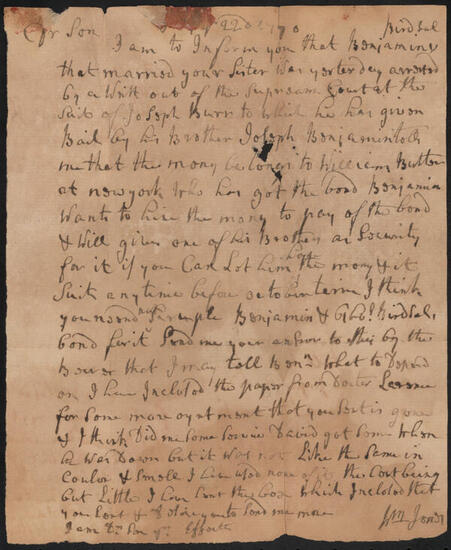 Dr Son 22 1770 Birdsal
I am to Inform you that Benjamin
that married your Sister was yesterday arrested
by a Writt out of the Supream Court at the
Suit of Joseph Burr to which he has given
Bail by his Brother Joseph Benjamin tells
me that the mony belongs to William Butler
at newyork who has got the bond Benjamin
Wants to hire the mony to pay of the bond
& Will give one of his Brothers as Security
for it if you Can Let him have the mony & it
Suit anytime before october term I think
you need not Scruple Benjamin & Birdsals
bond for it Send me your answer to this by the
Bearer that I may tell Benn What to Depend
on I have Inclosed the paper from Docter
for Some more oyntment that you Sent is gone
& I think Did me Some Service David got Some When
he Was Down but it Was not Like the Same in
Coulor & Smell I have used none of it the Cost being
but Little I have Sent the box Which Inclosed that
you Sent & desire you to Send me more
I am Dr Son yr Wm Jones